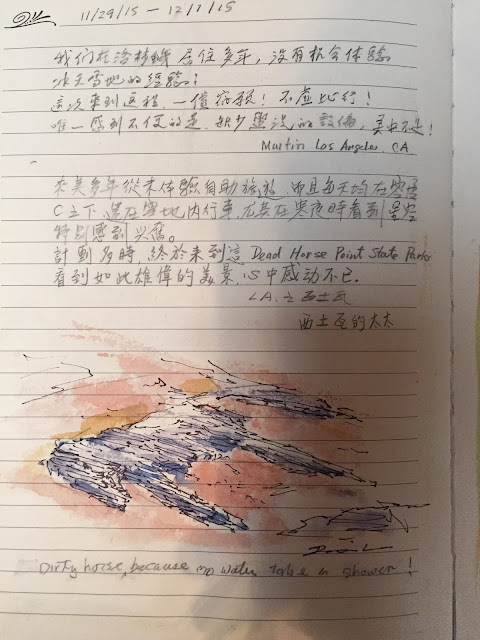 11/29/15 — 12/1/15
我们在洛杉磯居住多年,没有机会体驗
冰天雪地的經驗!
這次來到這裡,一償宿願!不虛此行!
唯一感到不便的是,缺少盥洗的設備,美中不足!
Martin Los Angeles, CA
來美多年從未体驗自助旅遊,而且每天均在零度
C之下,還在雪地内行車,尤其在寒夜時看到星空
特别感到兴奮。
計劃多時,終於來到這 Dead Horse Point State Park
看到如此雄偉的美景,心中感动不已.
LA. 之西土瓦
西土瓦的太太
Dirty horse, because no water take a shower!